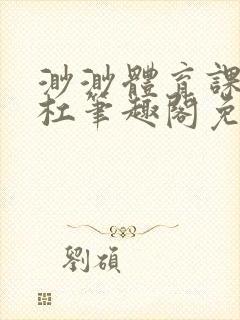 渺渺體育課
杜筆趣閣免
劉碩